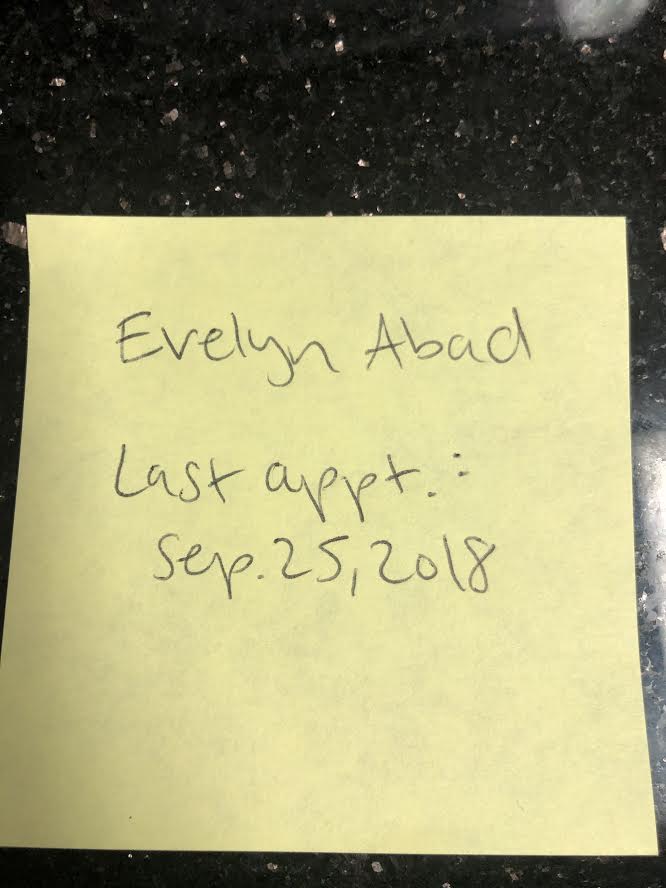 Evelyn Abad
Last appt.:
Sep. 25, 2018